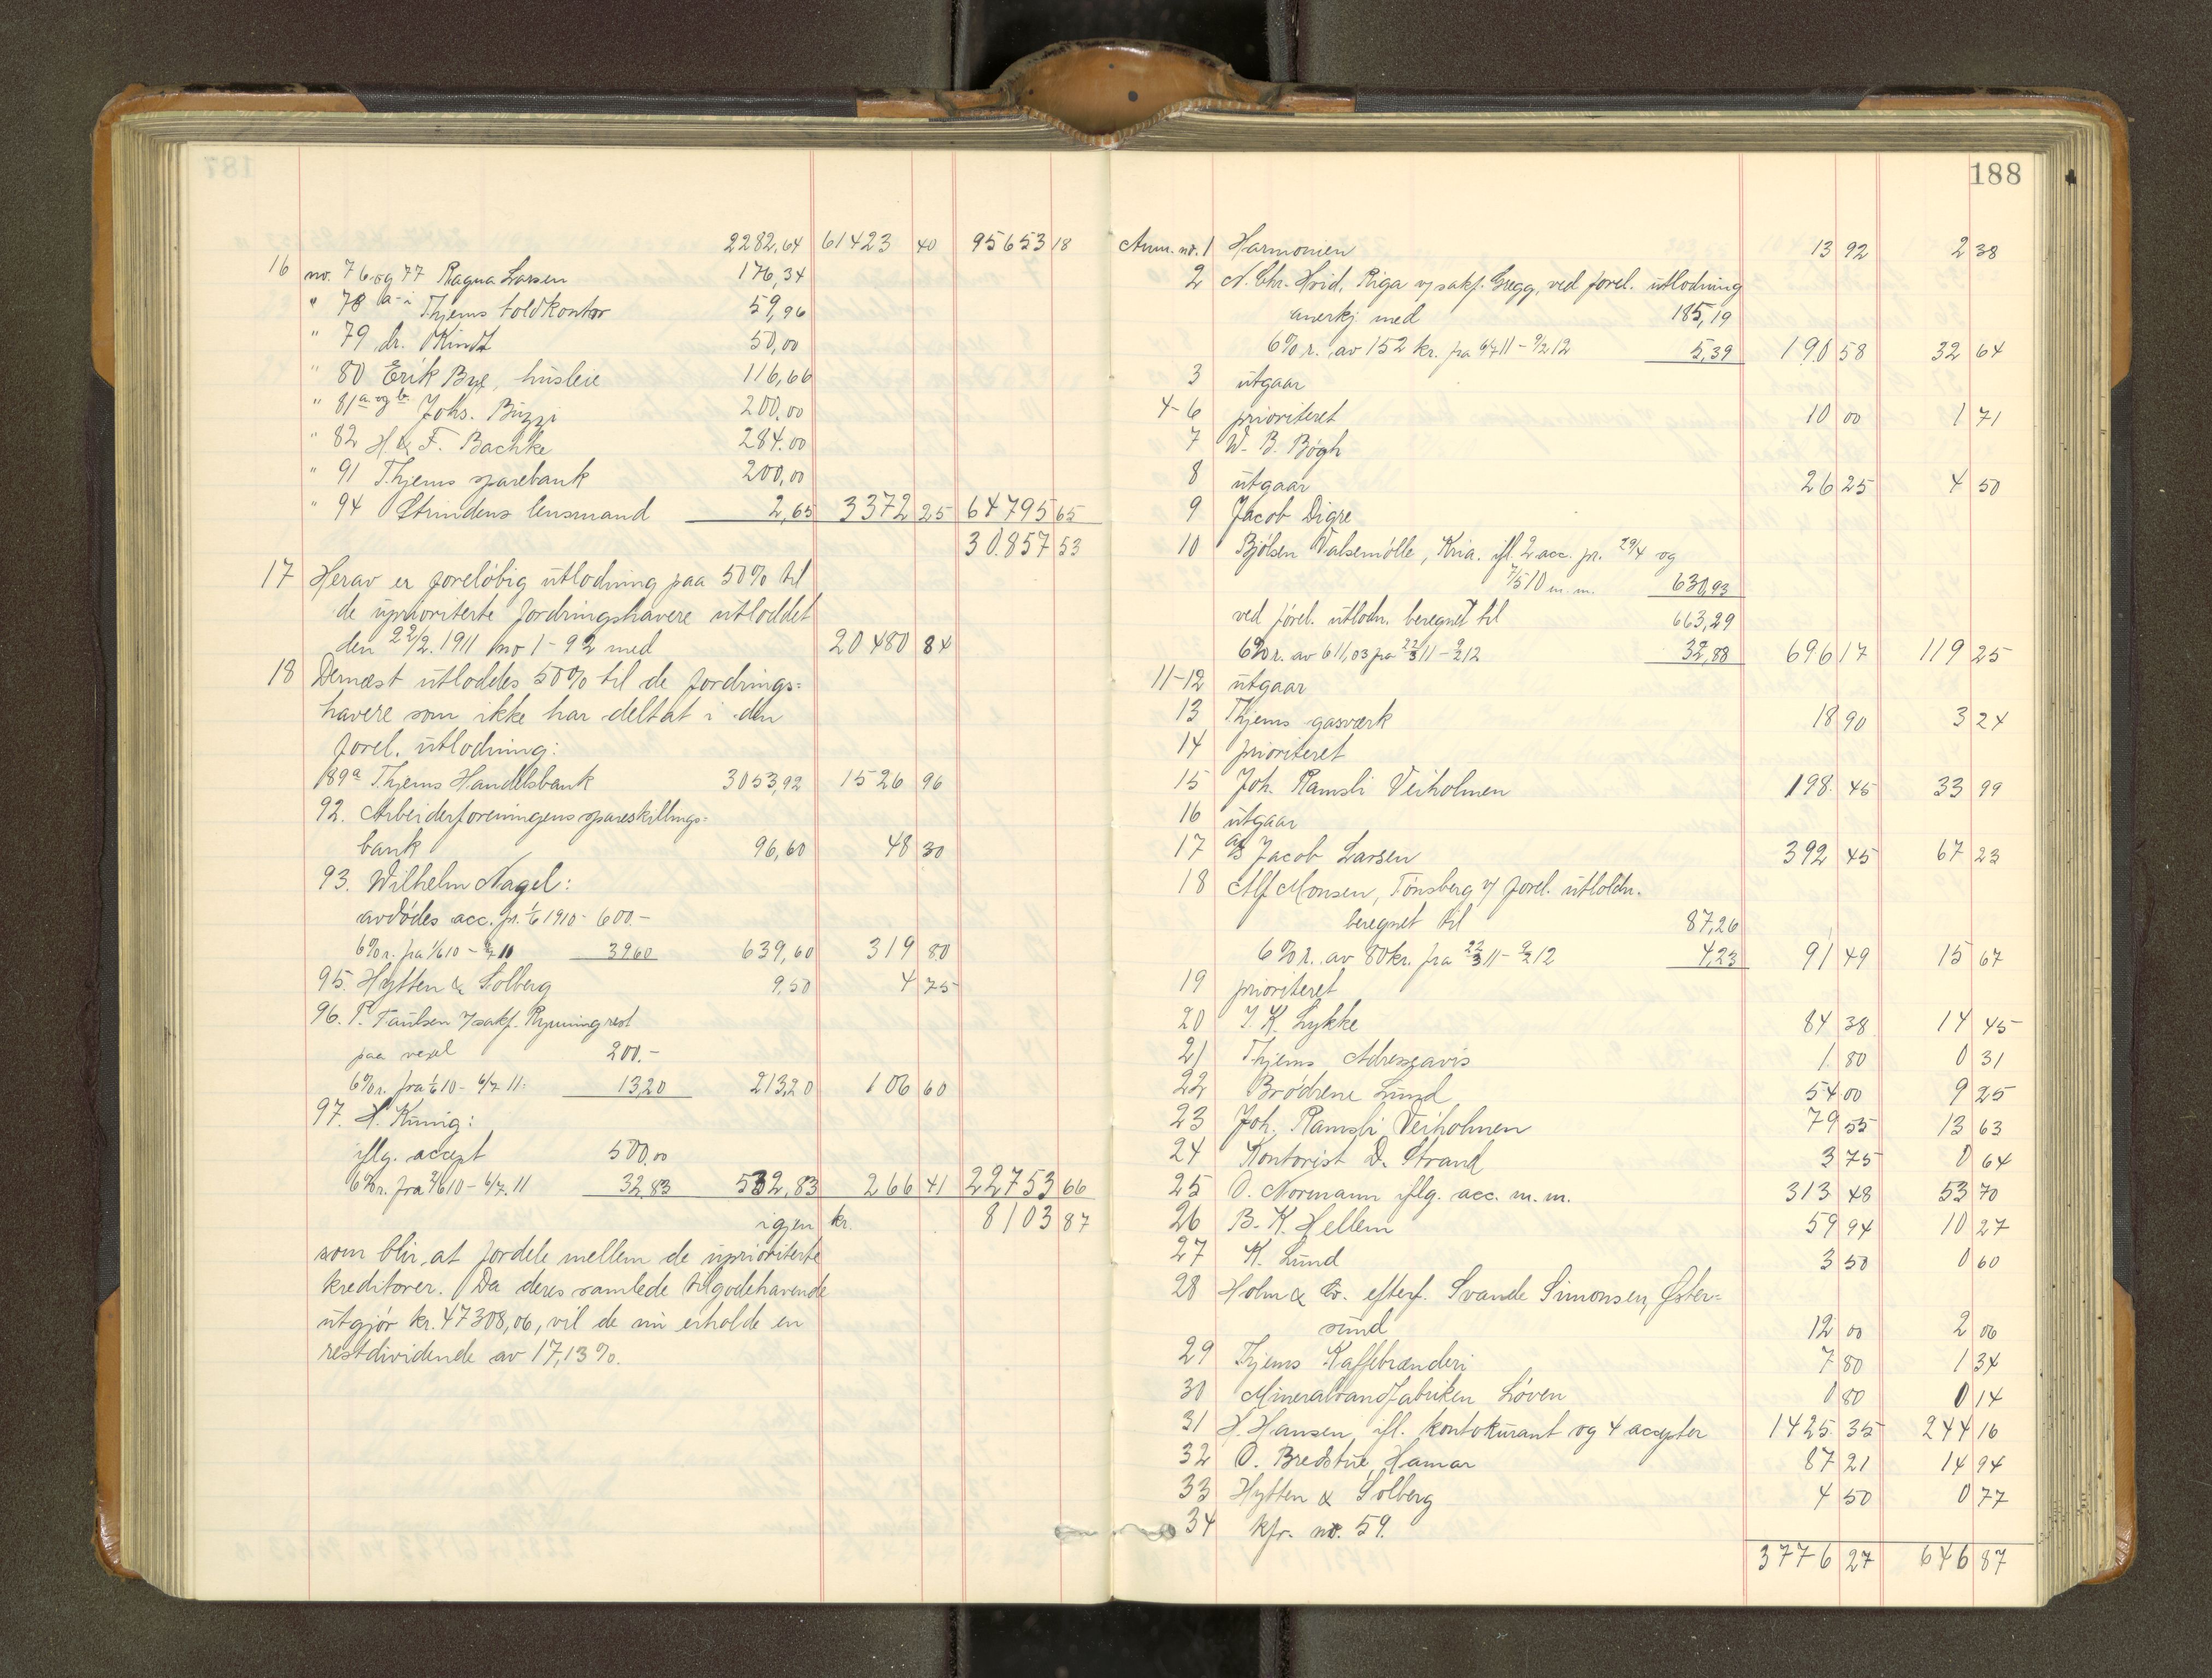 2282,64 61423 40 95653 18
16 no. 76 og 77 Ragna Larsen 176,34
" 78 a-i Thjems toldkontor 59,96
" 79 dr. Kindt 50,00
" 80 Erik Bye, husleie 116,66
" 81 a og b Johs. Buzzi 200,00
" 82 H. & F. Bachke 284.00
" 91 Thjems sparebank 200,00
" 94 Strindens lensmand 2,65 3372 25 64795 65
30.857 53
17 Herav er foreløbig utlodning paa 50% til
de uprioriterte fordringshavere utloddet
den 22/2. 1911 no 1-92 med 20480 84
18 Dernæst utloddes 50% til de fordrings=
havere som ikke har deltat i den
forel. utlodning:
89a Thjems Handelsbank 3053,92 1526 96
92. Arbeiderforeningens spareskillings=
bank 96,60 48 30
93. Wilhelm Nagel:
avdødes acc. pr. 1/6 1910 - 600.-
6% r. fra 1/6 10 - 6/7 11 3960 639,60 319 80
95. Hytten & Solberg 9,50 4 75
96. P. Paulsen v/ sakf. Ryming rest
paa vexel 200.-
6% r. fra 1/6 10 - 6/7. 11: 13,20 213,20 106 60
97. H. Kunig:
iflg. accept 500.00
6% r. fra 2/6 10 - 6/7. 11 32.83 532,83 266 41 22753 66
igjen kr. 8103 87
som blir at fordele mellem de uprioriterte
kreditorer. Da deres samlede tilgodehavende
utgjør kr. 47308,06, vil de nu erholde en
restdividende av 17,13%.
188
Anm. nr. 1 Harmonien 13 92 2 38
2 N. Chr. Hvid, Riga v/ sakf. Gregg, ved forel. utlodning
anerkj med 185,19
6% r. av 152 kr. fra 6/7 11 - 9/2 12 5,39 190 58 32 64
3 utgaar
4-6 prioritert 10 00 1 71
7 W. B. Bøgh
8 utgaar 26 25 4 50
9 Jacob Digre
10 Bjølsen Valsemølle, Kria. ifl. 2 acc. pr. 29/4 og
7/5 10 m. m. 630,93
ved forel. utlodn. beregnet til 663,29
6% r. av 611,03 fra 22/3 11 - 9/2 12 32,88 696 17 119 25
11-12 utgaar
13 Thjems gasværk 18 90 3 24
14 prioriteret
15 Joh. Ramsli Veiholmen 198. 45 33 99
16 utgaar
17 A/S Jacob Larsen 392 45 67 23
18 Alf Monsen, Tønsberg v/ forel. utlodn.
beregnet til 87,26
6% r. av 80 kr. fra 22/3 11 - 9/2 12 4,23 91 49 15 67
19 prioriteret
20 I. K. Lykke 84 38 14 45
21 Thjems Adresseavis 1. 80 0 31
22 Brødrene Lund 54 00 9 25
23 Joh. Ramsli Veiholmen 79 55 13 63
24 Kontorist D. Strand 3 75 0 64
25 O. Normann iflg. acc. m. m. 313 48 53 70
26 B. K. Hellem 59 94 10 27
27 K. Lund 3 50 0 60
28 Holm & Co. efterf. Svande Simonsen, Øster=
sund 12 00 2 06
29 Thjems Kaffebrænderi 7 80 1 34
30 Mineralvandfabriken Løven 0 80 0 14
31 H. Hansen, ifl. kontokurant og 4 accepter 1425. 35 244 16
32 O. Bredstue Hamar 87 21 14 94
33 Hytten & Solberg 4 50 0 77
34 kfr. nr. 59.
3776 27 646 87